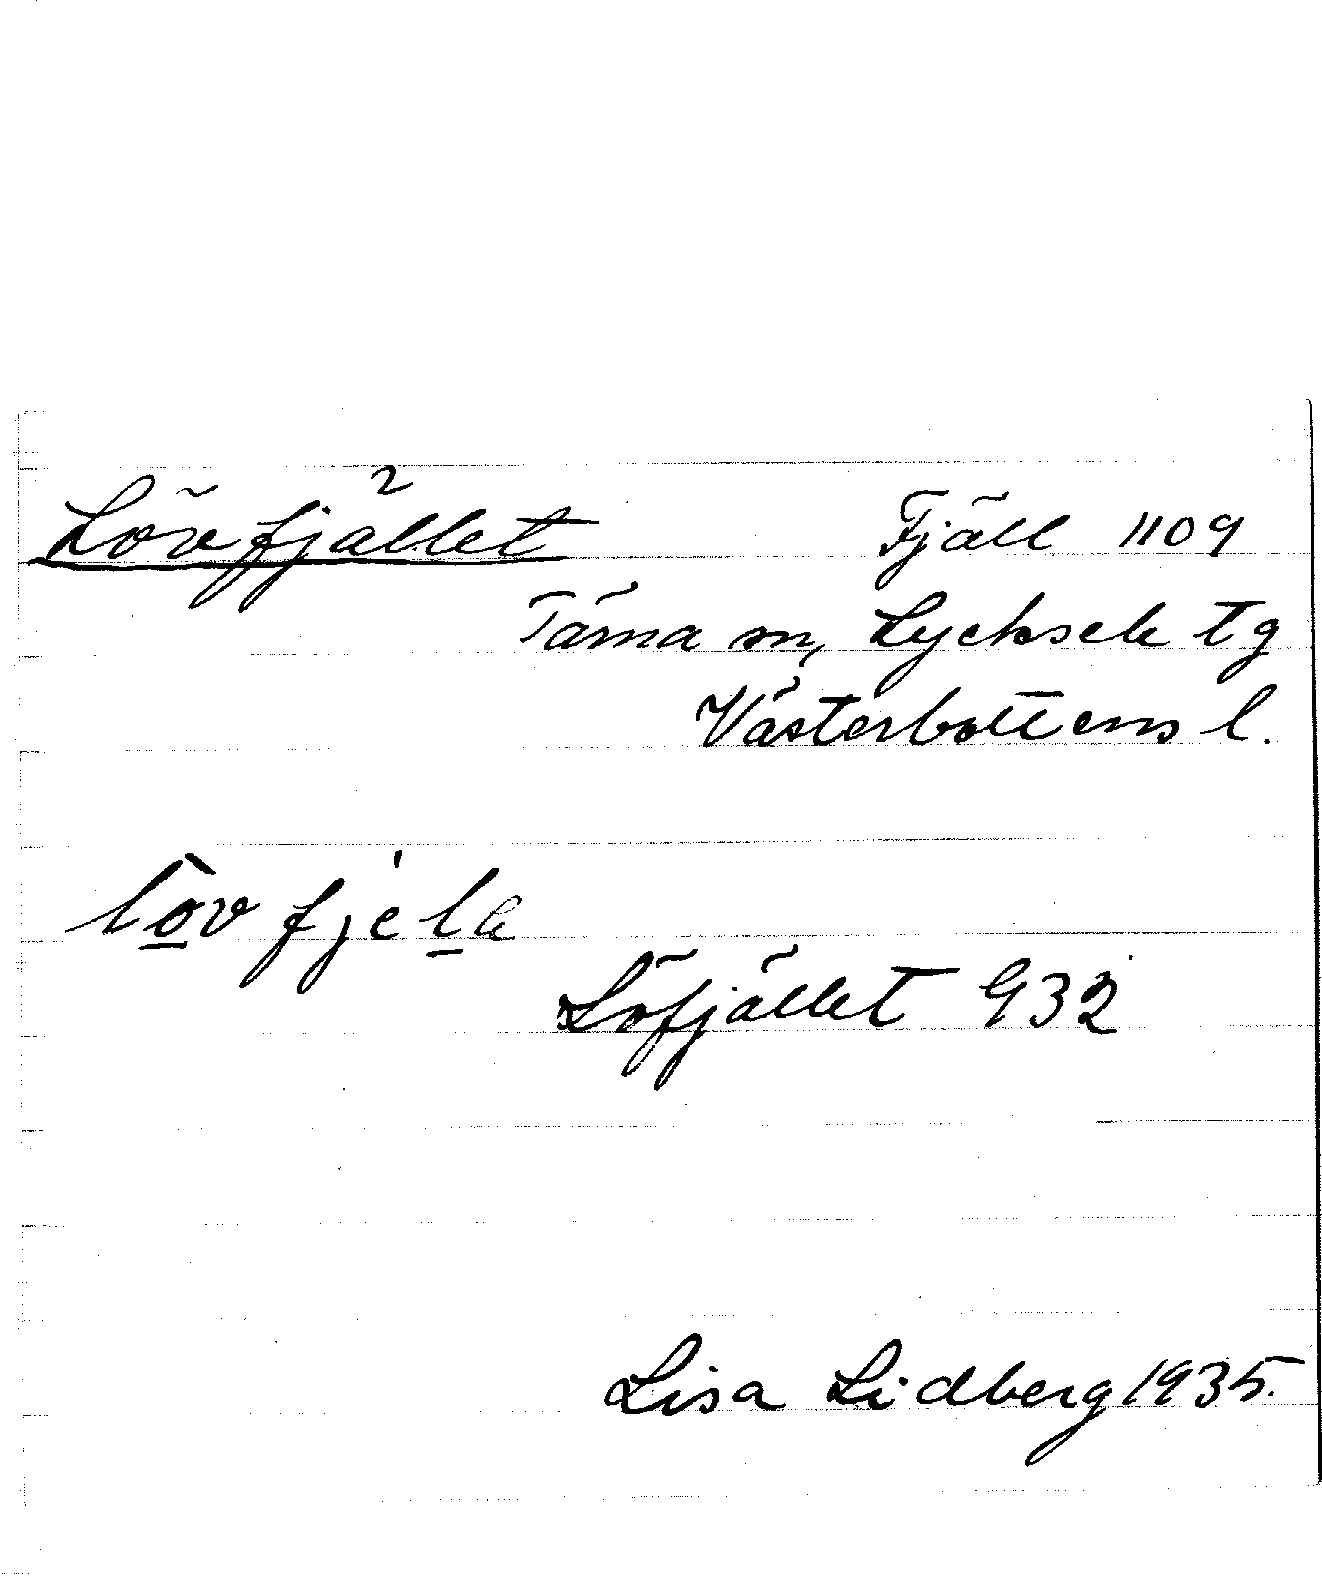 Lövfjället
Fjäll 1109
Tärna sn, Lycksele tg
Västerbottens l.
lövfjela
Löfjället 932
Lisa Lidberg 1935.